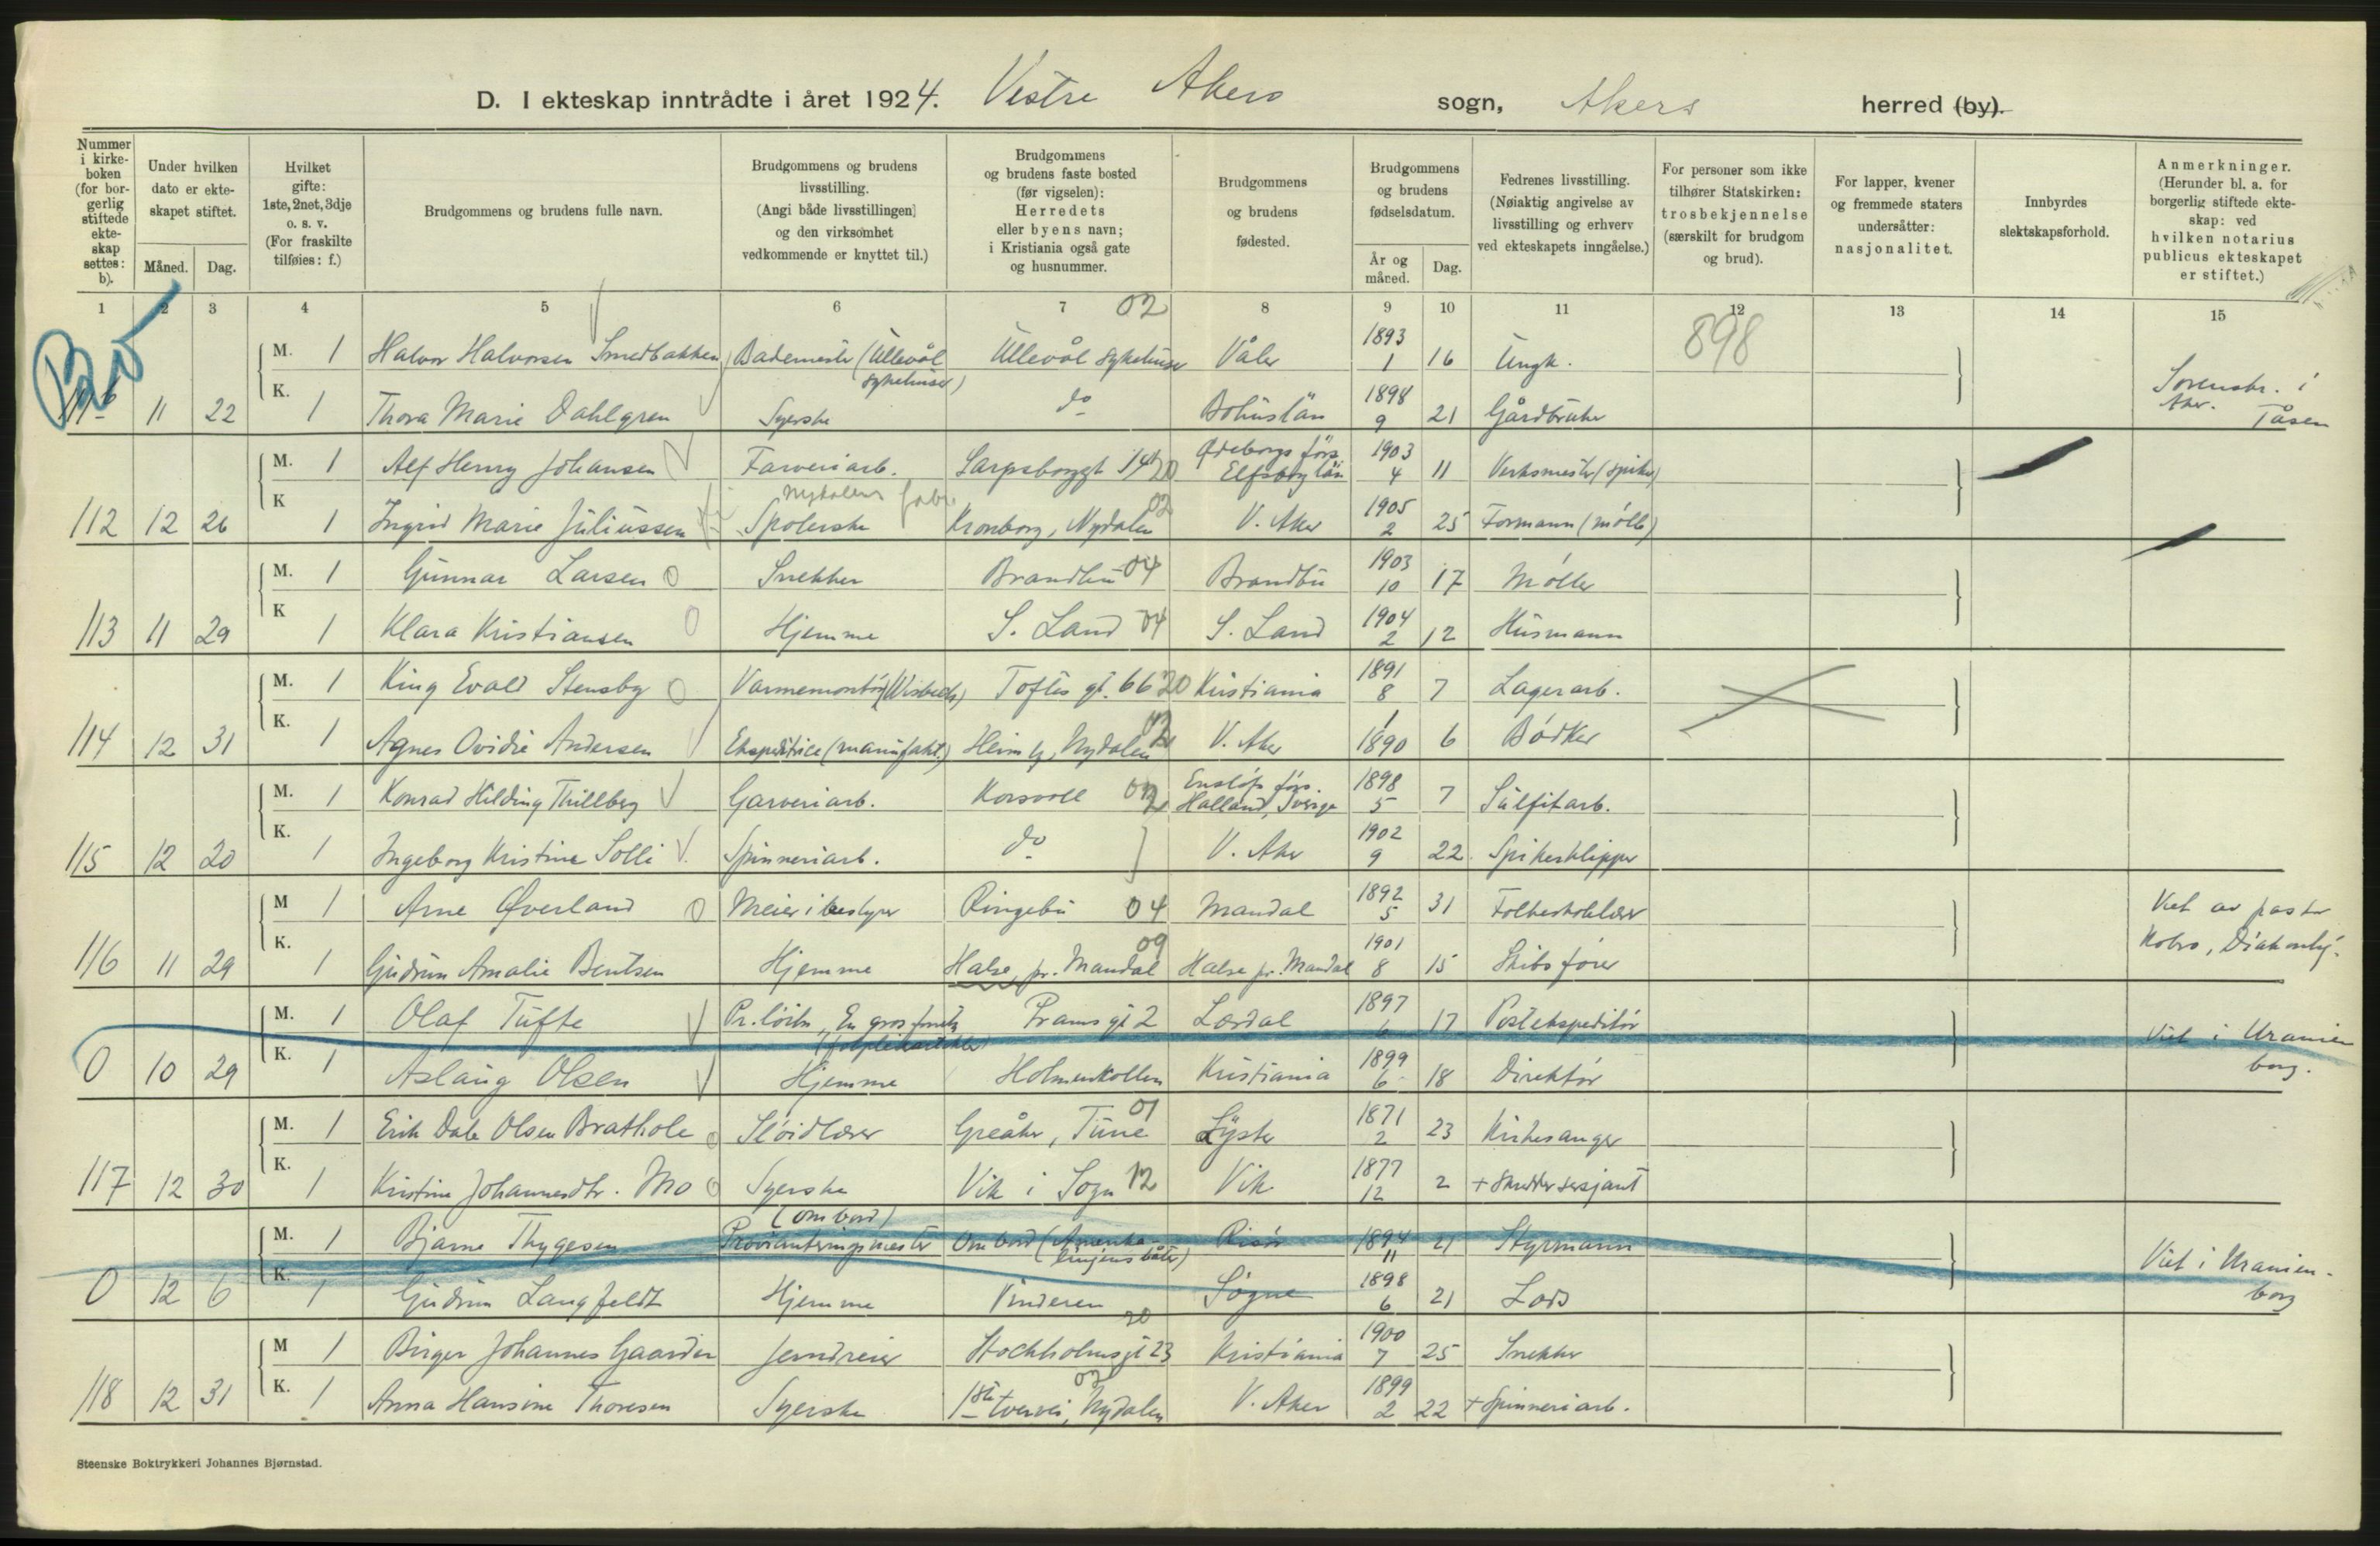 D. I ekteskap inntrådte i året 1924. Vestre Akers sogn, Akers herred (by).
Nummer i kirkeboken (for borgerlig stiftede ekteskap settes: b).
Under hvilken dato er ekteskapet stiftet.
Måned. Dag.
Hvilket gifte: 1ste, 2net, 3dje o. s. v. (For fraskilte tilføies: f.)
Brudgommens og brudens fulle navn.
Brudgommens og brudens livsstilling. (Angi både livsstillingen og den virksomhet vedkommende er knyttet til.)
Brudgommens og brudens faste bosted (før vigselen): Herredets eller byens navn; i Kristiania også gate og husnummer.
Brudgommens og brudens fødested.
Brudgommens og brudens fødselsdatum.
År og måned. Dag.
Fedrenes livsstilling. (Nøiaktig angivelse av livsstilling og erhverv ved ekteskapets inngåelse.)
For personer som ikke tilhører Statskirken: trosbekjennelse (særskilt for brudgom og brud).
For lapper, kvener og fremmede staters undersåtter: nasjonalitet.
Innbyrdes slektskapsforhold.
Anmerkninger. (Herunder bl. a. for borgerlig stiftede ekteskap: ved hvilken notarius publicus ekteskapet er stiftet.)
1 2 3 4 5 6 7 02 8 9 10 11 12 13 14 15
M. 1 Halvor Halvorsen Smedbakken Bademester (Ullevål sykehuser) Ullevål sykehuser Våler 1893 1 16 Ungk. 898
11 22 K. 1 Thora Marie Dahlgren Syerske do Bohuslän 1898 9 21 Gårdbruker Sorenskr. i Aker. Tåsen
M. 1 Alf Henry Johansen Farveriarb. Sarpsborggt 20 Ødeborgs förs. Elfsborg län 1903 4 11 Verksmester (spiker)
112 12 26 K 1 Ingrid Marie Juliussen Spolerske Nydalens fabr. Kronborg, Nydalen 02 V. Aker 1905 2 25 Formann (mølle)
M. 1 Gunnar Larsen Snekker Brandbu 04 Brandbu 1903 10 17 Møller
113 11 29 K 1 Klara Kristiansen Hjemme S. Land 04 S. Land 1904 2 12 Husmann
M. 1 King Evald Stensby Varmemontør (Wisbech) Toftes gt. 66 20 Kristiania 1891 8 7 Lagerarb.
114 12 31 K. 1 Agnes Ovidie Andersen Ekspeditrice (manufakt.) Heim, Nydalen 02 V. Aker 1 1890 6 Bødker
M. 1 Konrad Hilding Thillberg Garveriarb. Korsvoll 02 Enslöfs förs. Halland, Sverge 1898 5 7 Sulfitarb.
115 12 20 K. 1 Ingeborg Kristine Solli Spinneriarb. do V. Aker 1902 9 22 Spikerklipper
M 1 Arne Øverland Meieribestyrer Ringebu 04 Mandal 1892 5 31 Folkeskolelærer Viet av pastor
116 11 29 K. 1 Gudrun Amalie Bentsen Hjemme Halse pr. Mandal 09 Halse pr. Mandal 1901 8 15 Skibsfører
M. 1 Olaf Tufte Frams gt 2 Lærdal 1897 6 17 Postekspeditør Viet i Uranienborg.
0 10 29 K. 1 Aslaug Olsen Hjemme Holmenkollen Kristiania 1899 6 18 Direktør
M. 1 Erik Dale Olsen Brathole Sløidlærer Greåker, Tune 01 Lyster 1871 2 23 Kirkesanger
117 12 30 K. 1 Kristine Johannesdtr. Mo Syerske Vik i Sogn 12 Vik 1877 12 2 + Skreddersersjant
M. 1 Bjarne Thygesen Provianteringsmester (ombord) Ombord (Amerikalinjens båter) Risør 1894 11 21 Styrmann
0 12 6 K. 1 Gudrun Langfeldt Hjemme Vinderen Søgne 1898 6 21 Lods Viet i Uranienborg
M 1 Birger Johannes Gaarder Jerndreier Stockholmsgt 23 20 Kristiania 1900 7 25 Snekker
118 12 31 K. 1 Anna Hansine Thoresen Syerske 1ste tvervei, Nydalen 02 V. Aker 1899 2 22 + Spinneriarb.
Steenske Boktrykkeri Johannes Bjørnstad.